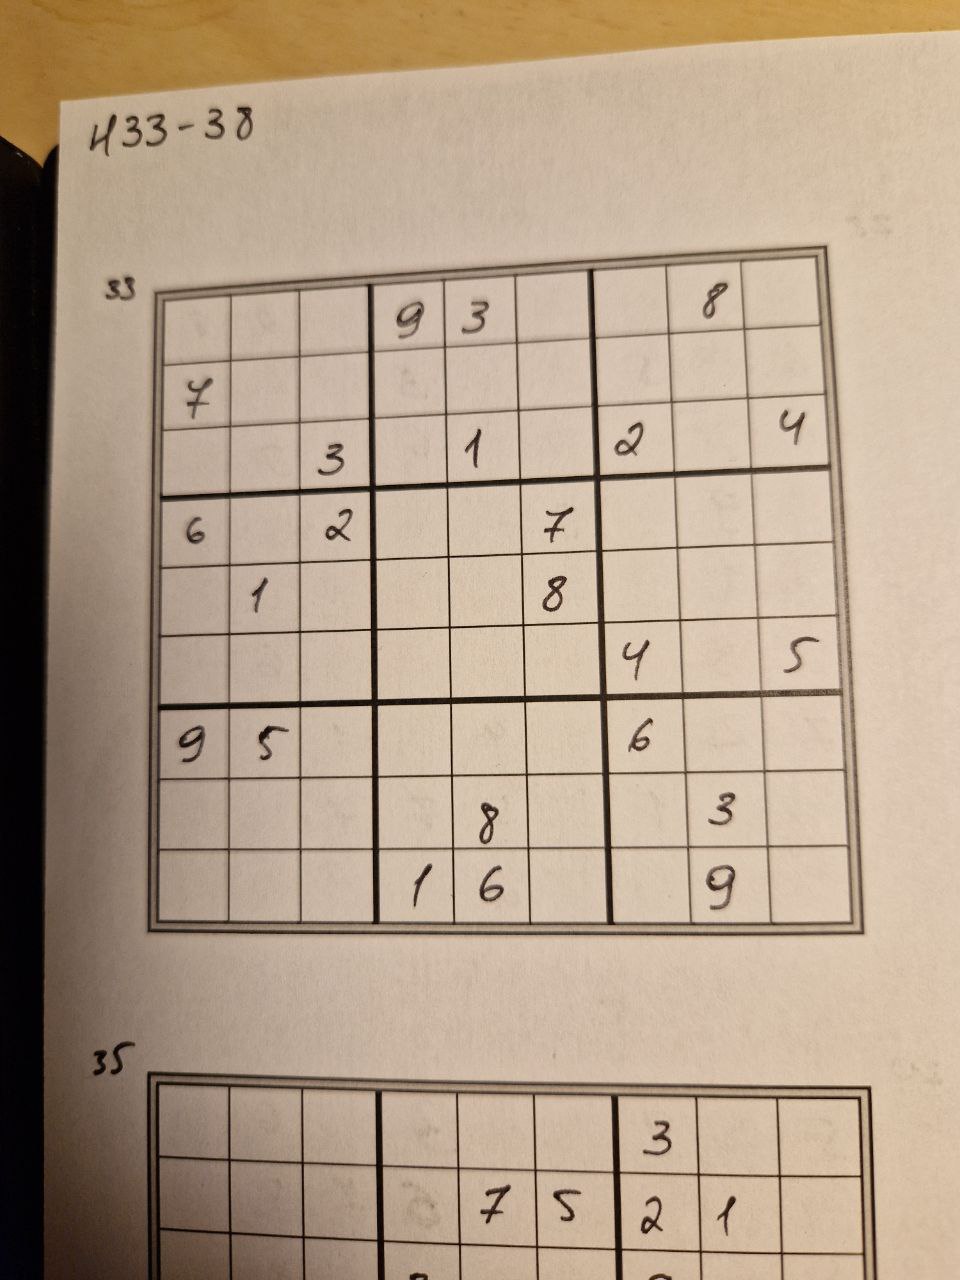 H33-38
33
9 3 8
7
3 1 2 4
6 2 7
1 8
4 5
9 5 6
8 3
1 6 9
35
3
7 5 2 1